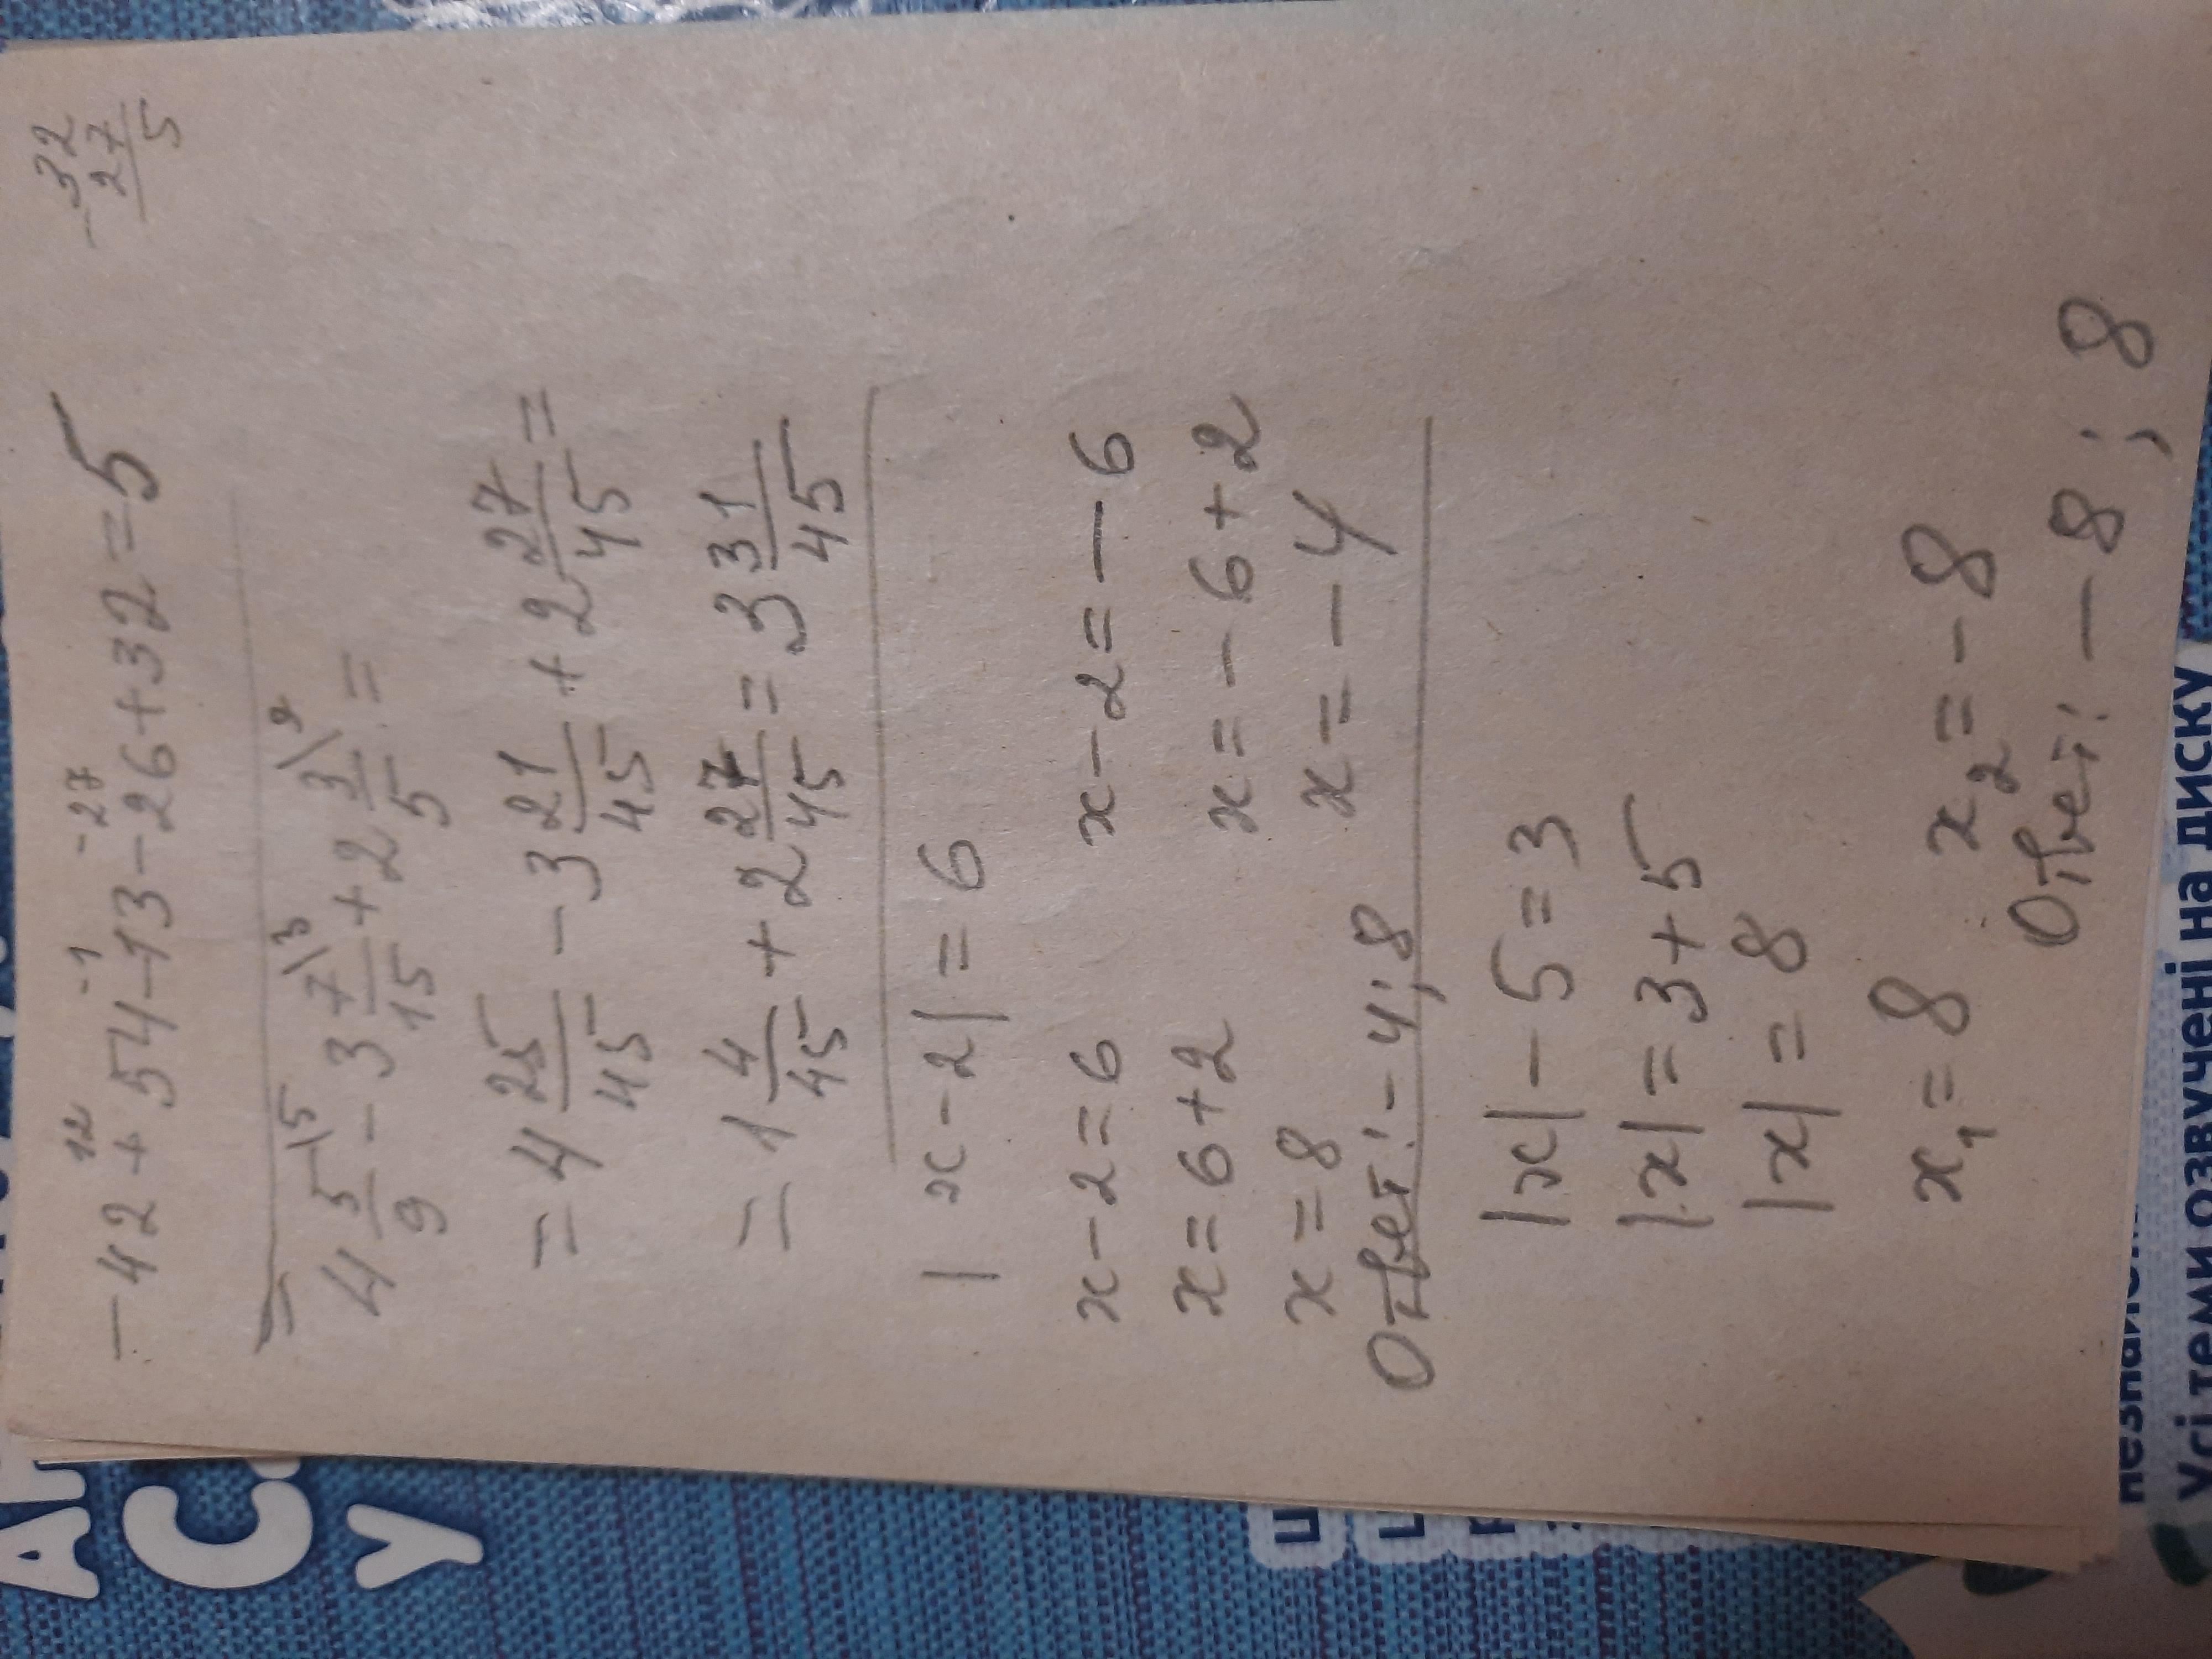 32
- 27
5
12 -1 -27
-42+54-13-26+32=5
4 5/9 \5 - 3 7/15 \3 + 2 3/5 \9 =
= 4 25/45 - 3 21/45 + 2 27/45 =
= 1 4/45 + 2 27/45 = 3 31/45
|x-2|=6
x-2=6 x-2=-6
x=6+2 x=-6+2
x=8 x=-4
Ответ: -4;8
|x|-5=3
|x|=3+5
|x|=8
x₁=8 x₂=-8
Ответ: -8;8
С
У
Усі теми озвучені на диску